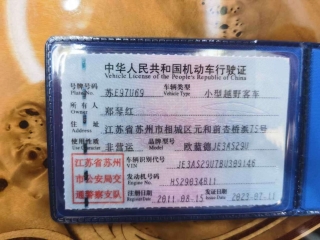 中华人民共和国机动车行驶证
Vehicle License of the People's Republic of China
号牌号码 苏E97U69 车辆类型 小型越野客车
Plate No. Vehicle Type
所有人 郑琴红
Owner
住址 江苏省苏州市相城区元和蔚杏桥泵75号
Address
使用性质 非营运 品牌型号 欧蓝德JE3AS29U
Use Character Model
江苏省苏州 车辆识别代号
VIN
市公安局交 发动机号码
Engine No.
通警察支队 注册日期 2011-08-15 发证日期
Register Date Issue Date